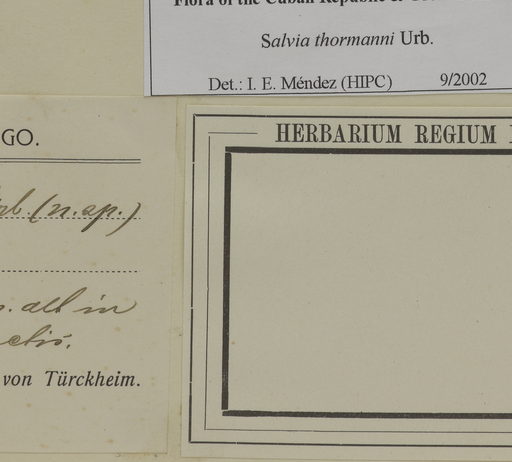 Flora of the Cuban Republic
Salvia thormanni Urb.
Det.: I. E. Méndez (HIPC) 9/2002
GO.
(n. sp.)
alt in
von Türckheim.
HERBARIUM REGIUM